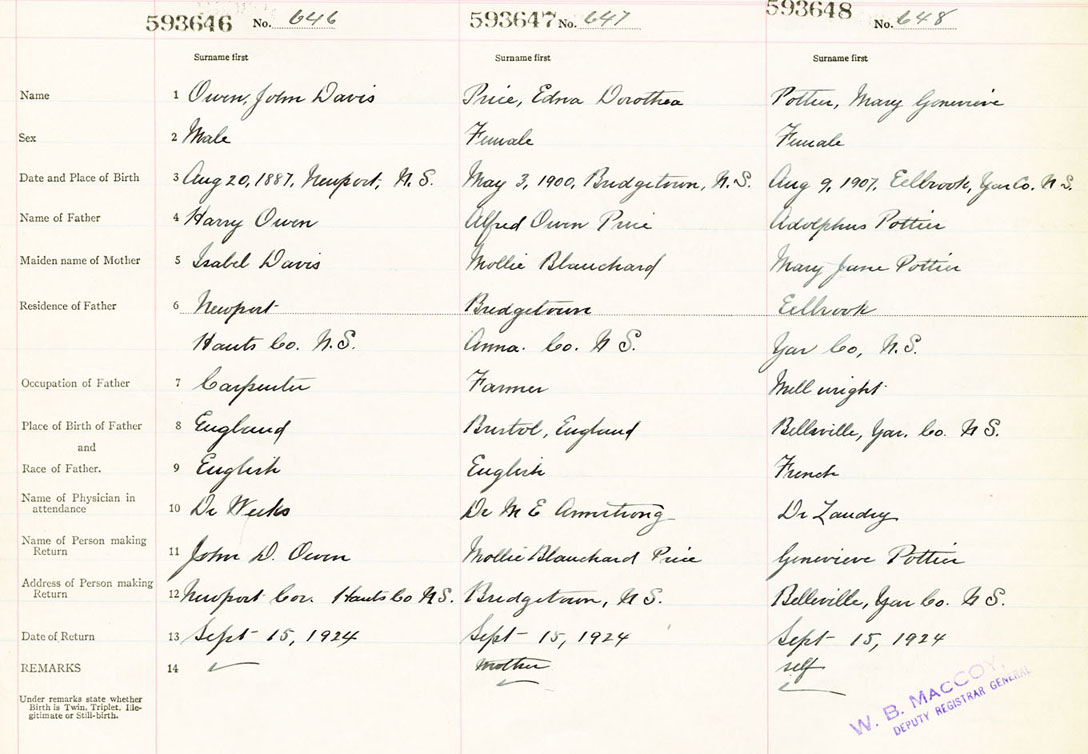 593646 No. 646 593647 No. 647 593648 No. 648
Surname first Surname first Surname first
Name 1 Owen, John Davis Price, Edna Dorothea Pottier, Mary Genevieve
Sex 2 Male Female Female
Date and Place of Birth 3 Aug 20, 1887, Newport, N.S. May 3, 1900, Bridgetown, N.S. Aug 9, 1907, Eelbrook, Yar Co. N S.
Name of Father 4 Harry Owen Alfred Owen Price Adolphus Pottier
Maiden name of Mother 5 Isabel Davis Mollie Blanchard Mary Jane Pottier
Residence of Father 6 Newport Bridgetown Eelbrook
Hants Co. N.S. Anna. Co. N S. Yar Co, N.S.
Occupation of Father 7 Carpenter Farmer Mill wright
Place of Birth of Father 8 England Bristol, England Belleville, Yar. Co. N S.
and
Race of Father. 9 English English French
Name of Physician in
attendance 10 Dr Weeks Dr M E Armstrong Dr Landry
Name of Person making
Return 11 John D. Owen Mollie Blanchard Price Genevieve Pottier
Address of Person making
Return 12 Newport Cor. Hants Co N.S. Bridgetown, N S. Belleville, Yar Co. N S.
Date of Return 13 Sept 15, 1924 Sept 15, 1924 Sept 15, 1924
REMARKS 14 mother self
Under remarks state whether
Birth is Twin, Triplet, Ille-
gitimate or Still-birth.
W. B. MACCOY,
DEPUTY REGISTRAR GENERAL